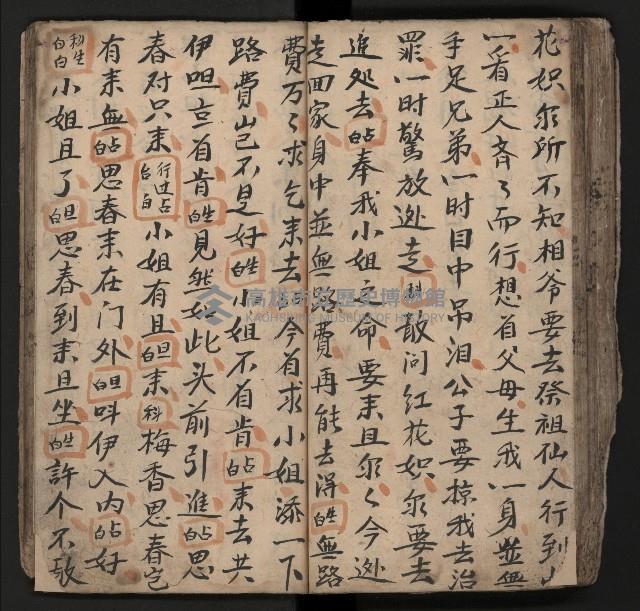 花娘尔所不知相爷要去祭祖仙人行到山
一看正人斉々而行想着父母生我一身並無
手足兄弟一时目中吊泪公子要掠我去治
罪一时驚放迯走科敢问红花娘尔要去
追处去占白奉我小姐之命要来且尔々今迯
走回家身中並無路費再能去得生白無路
費万々求乞来去占白今着求小姐添一下
路費山己不是好生白小姐不肯占白来去共
伊呾言首肯生白見然如此头前引進占白思
春对只来行过台占白小姐有且旦白来科梅香思春
有来無占白思春来在门外旦白叫伊入内占白好
科生白白小姐且了旦白思春到来且坐生白許个不敢
高雄市立歷史博物館
KAOHSIUNG MUSEUM OF HISTORY